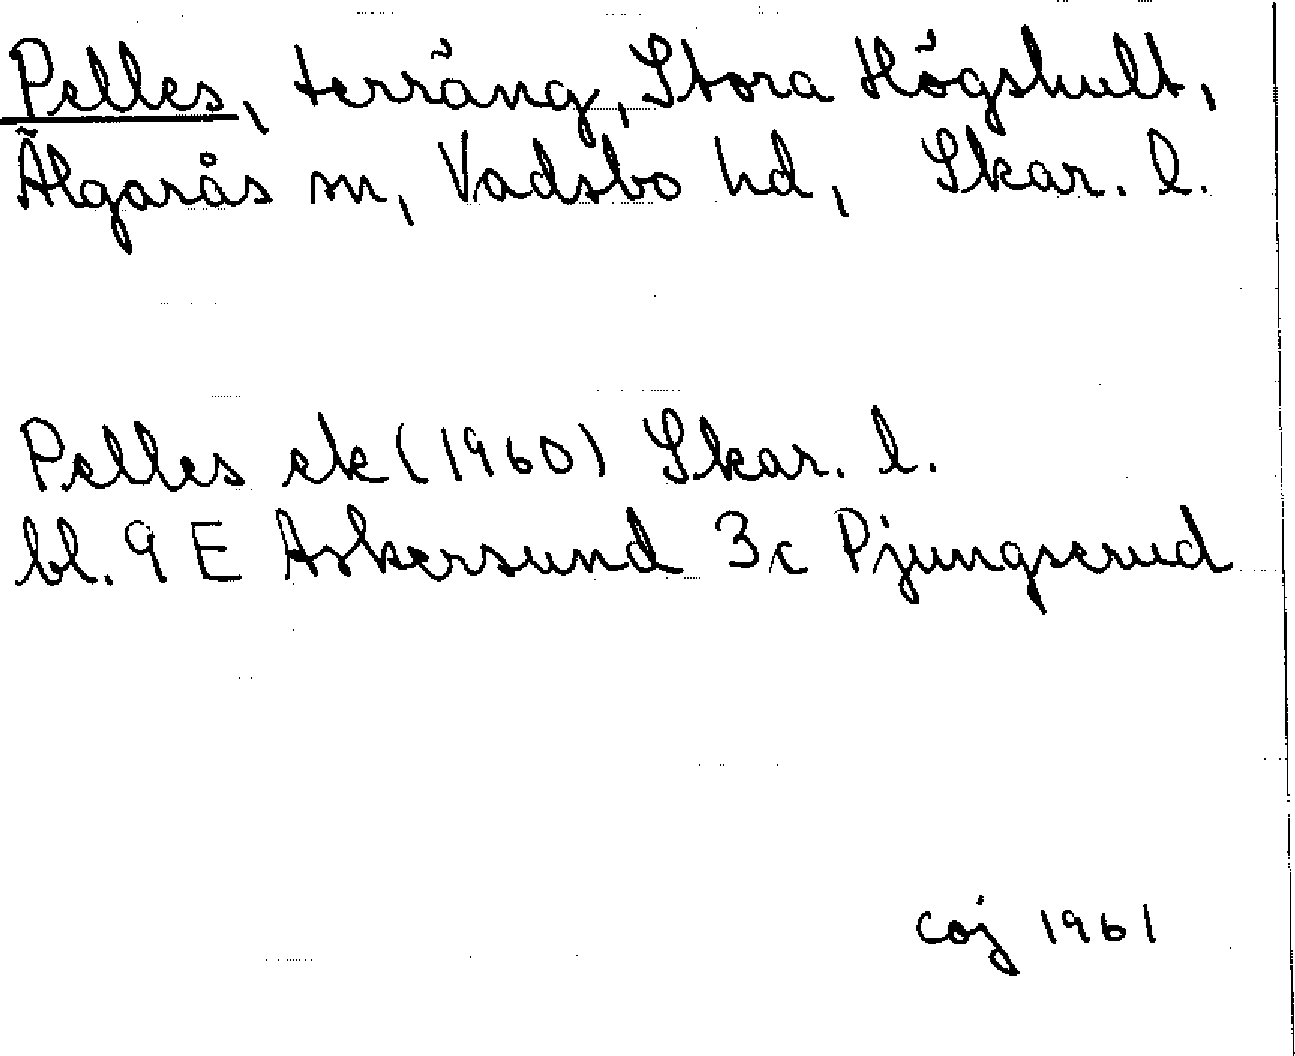 Pelles, terräng, Stora Högshult,
Älgarås sn, Vadsbo hd, Skar. l.
Pelles ek (1960) Skar. l.
bl. 9 E Askersund 3c Pjungserud
coj 1961